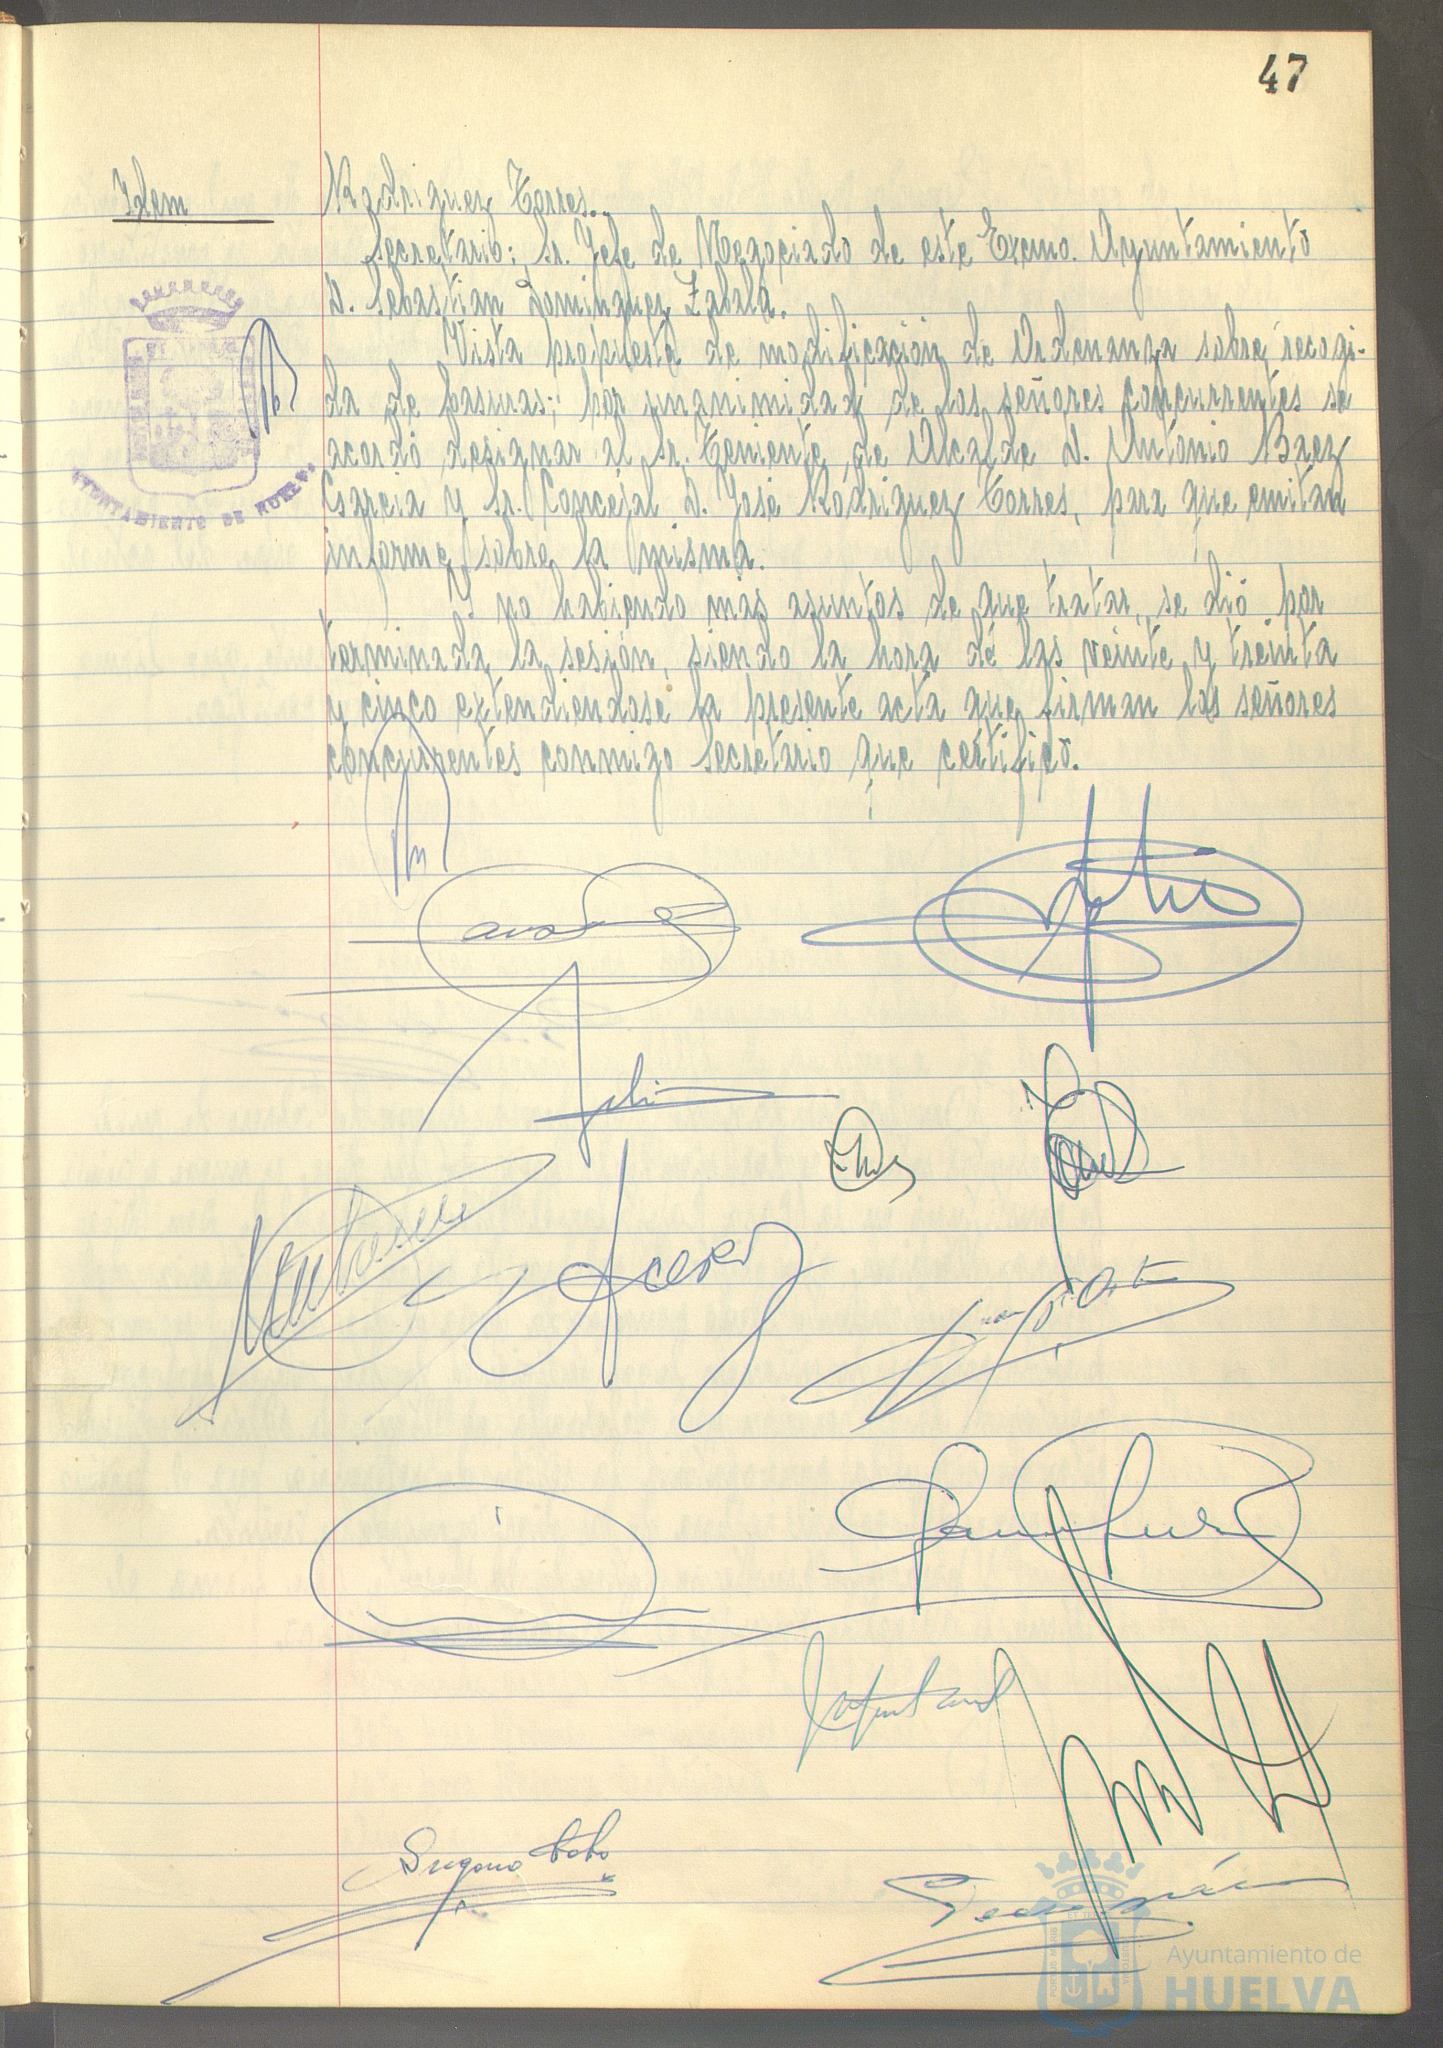 47
Idem
Rodriguez Torres.
Secretario: Sr. Jefe de Negociado de este Excmo. Ayuntamiento
D. Sebastian Dominguez Zabala.
Vista propuesta de modificación de Ordenanza sobre recogi-
da de basuras; por unanimidad de los señores concurrentes se
acordó designar al Sr. Teniente de Alcalde D. Antonio Baez
Garcia y Sr. Concejal D. José Rodriguez Torres, para que emitan
informe sobre la misma.
Y no habiendo mas asuntos de que tratar, se dió por
terminada la sesión, siendo la hora de las veinte y treinta
y cinco extendiendose la presente acta que firman los señores
concurrentes conmigo Secretario que certifico.
AYUNTAMIENTO DE HUELVA
Ayuntamiento de
HUELVA